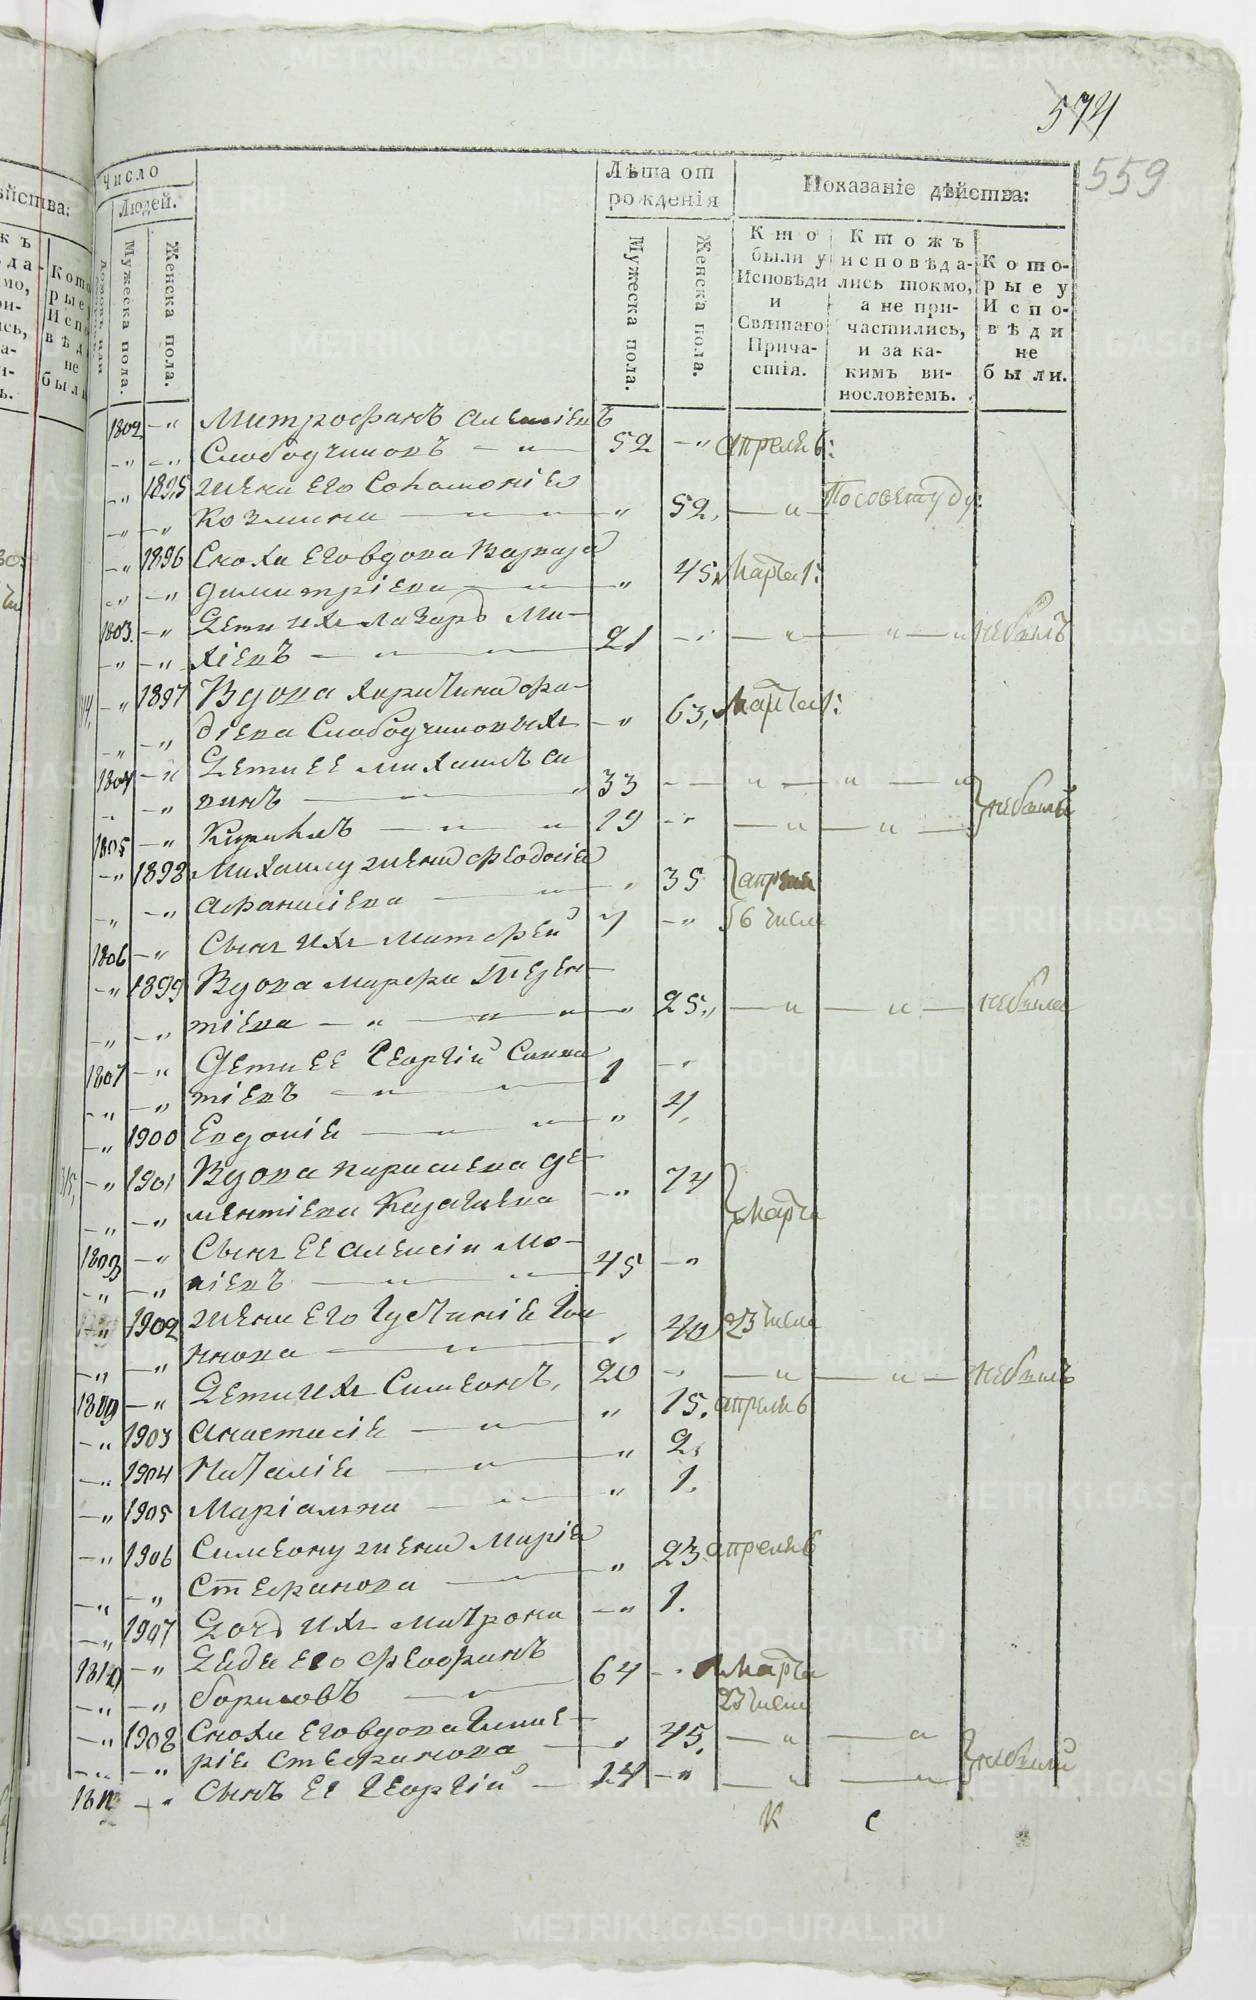 574
559
Число
Людей.
Мужеска пола.
Женска пола.
Лѣта от
рожденія
Мужеска пола.
Женска пола.
Показаніе дѣйства:
Кто
были у
Исповѣди
и
Святаго
Прича-
стія.
Ктожъ
исповѣда-
лись токмо,
а не при-
частились,
и за ка-
кимъ ви-
нословіемъ.
Кото-
рые у
Испо-
вѣди
не
были.
1802 Митрофанъ Алексіевъ
Слободчиковъ 52 апреля 6:
1895 жена его Соломоніа
Козмина 52, По совету ду:
1896 Сноха его вдова Варвара
Димитріева 45, Марта 1:
1803. Дети ихъ Лазарь Ми-
хіевъ 21 небылъ
1897 Вдова Харитина фа-
діева Слободчиковыхъ 63, Марта 1:
1804 Дети ее Михаилъ Са
винъ 33 небыли
1805 Кирикъ 19
1898 Михаилу жена Феодосіа
Афанасіева 35 апреля
1806 Сынъ ихъ Матфей 7 6 числа
1899 Вдова Марфа Терен-
тіева 25, небыла
1807 Дети ее Георгій Савва
тіевъ 1
1900 Евдокіа 4,
1901 Вдова Параскева Де-
ментіева Казанцева 74 Марта
1808 Сынъ ее Алексіи Мо-
кіевъ 45
1902 жена его Іустиніа Іоа
ннова 40 23 числа
1809 Дети ихъ Симеонъ, 20 небылъ
1903 Анастасіа 15. апреля 6
1904 Наталіа 2,
1905 Маріамна 1.
1906 Симеону жена Маріа
Стефанова 23 апреля 6
1907 Дочь ихъ Матрона 1.
1810 Дядя его Феофанъ
Борисовъ 64 Марта
23 числа
1908 Сноха его вдова Глике-
ріа Стефанова 45. небыли
Сынъ ее Георгій 14
К С